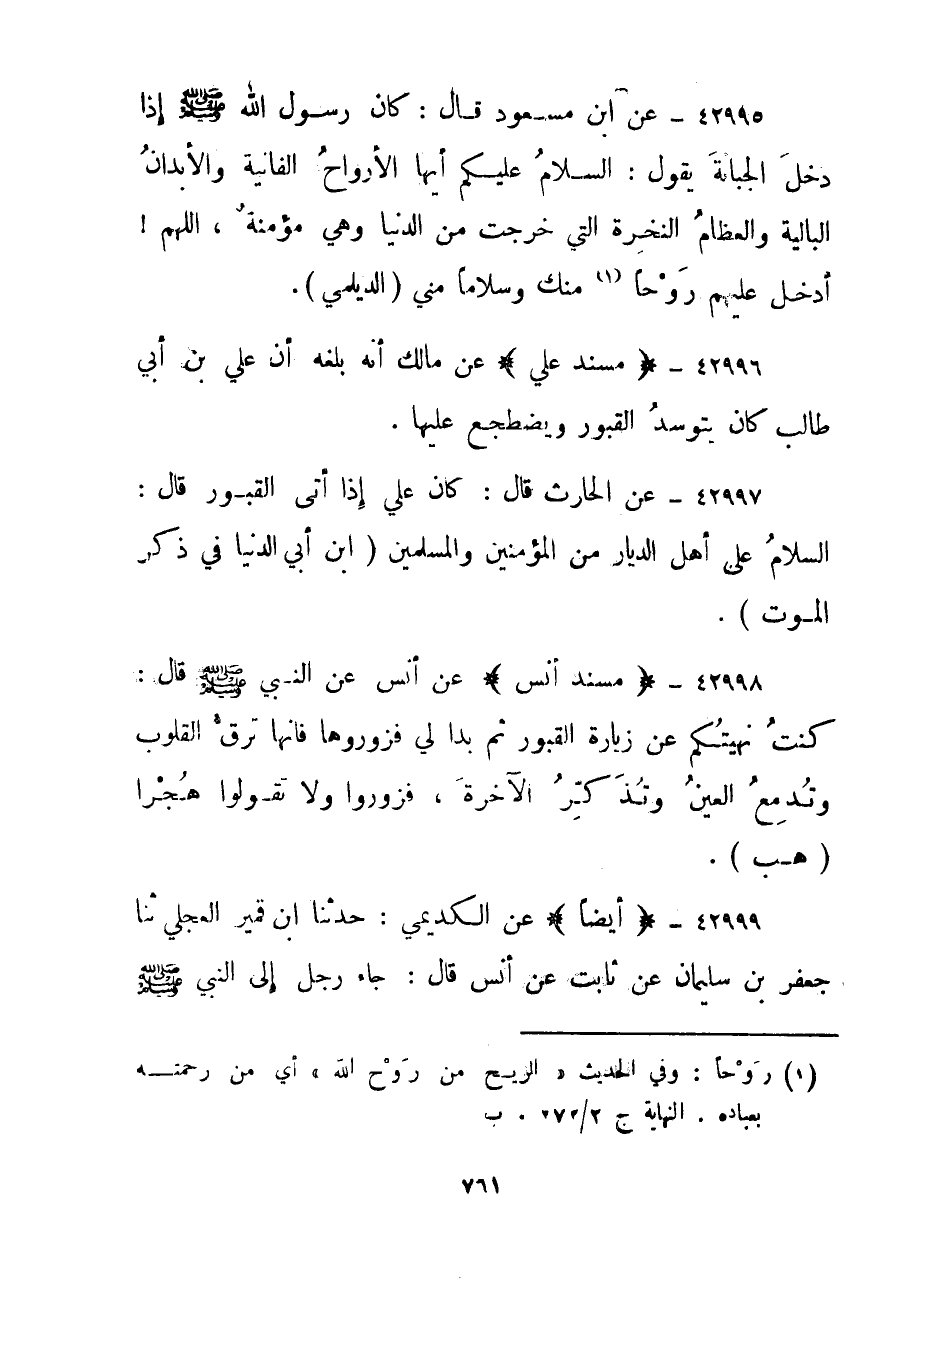 ٤٢٩٩٥ ـ عن ابن مسعود قال : كان رسول الله ﷺ إذا
دخلَ الجبانةَ يقول : السلامُ عليكم أيها الأرواحُ الفانية والأبدانُ
البالية والعظامُ النخرة التي خرجت من الدنيا وهي مؤمنةٌ ، اللهم !
أدخل عليهم رَوْحاً (١) منك وسلاماً مني ( الديلمي ) .
٤٢٩٩٦ ـ ﴿ مسند علي ﴾ عن مالك أنه بلغه أن علي بن أبي
طالب كان يتوسدُ القبور ويضطجع عليها .
٤٢٩٩٧ ـ عن الحارث قال : كان علي إذا أتى القبور قال :
السلامُ على أهل الديار من المؤمنين والمسلمين ( ابن أبي الدنيا في ذكر
الموت ) .
٤٢٩٩٨ ـ ﴿ مسند أنس ﴾ عن أنس عن النبي ﷺ قال :
كنتُ نهيتُكم عن زيارة القبور ثم بدا لي فزوروها فانها ترقُّ القلوب
وتُدمِعُ العينُ وتُذَكِّرُ الآخرةَ ، فزوروا ولا تقولوا هُجْرا
( هب ) .
٤٢٩٩٩ ـ ﴿ أيضاً ﴾ عن الكديمي : حدثنا ابن قمير العجلي ثنا
جعفر بن سليمان عن ثابت عن أنس قال : جاء رجل إلى النبي ﷺ
(١) رَوْحاً : وفي الحديث « الريح من رَوْح الله » أي من رحمته
بعباده . النهاية ج ٢٧٢/٢ . ب
٧٦١